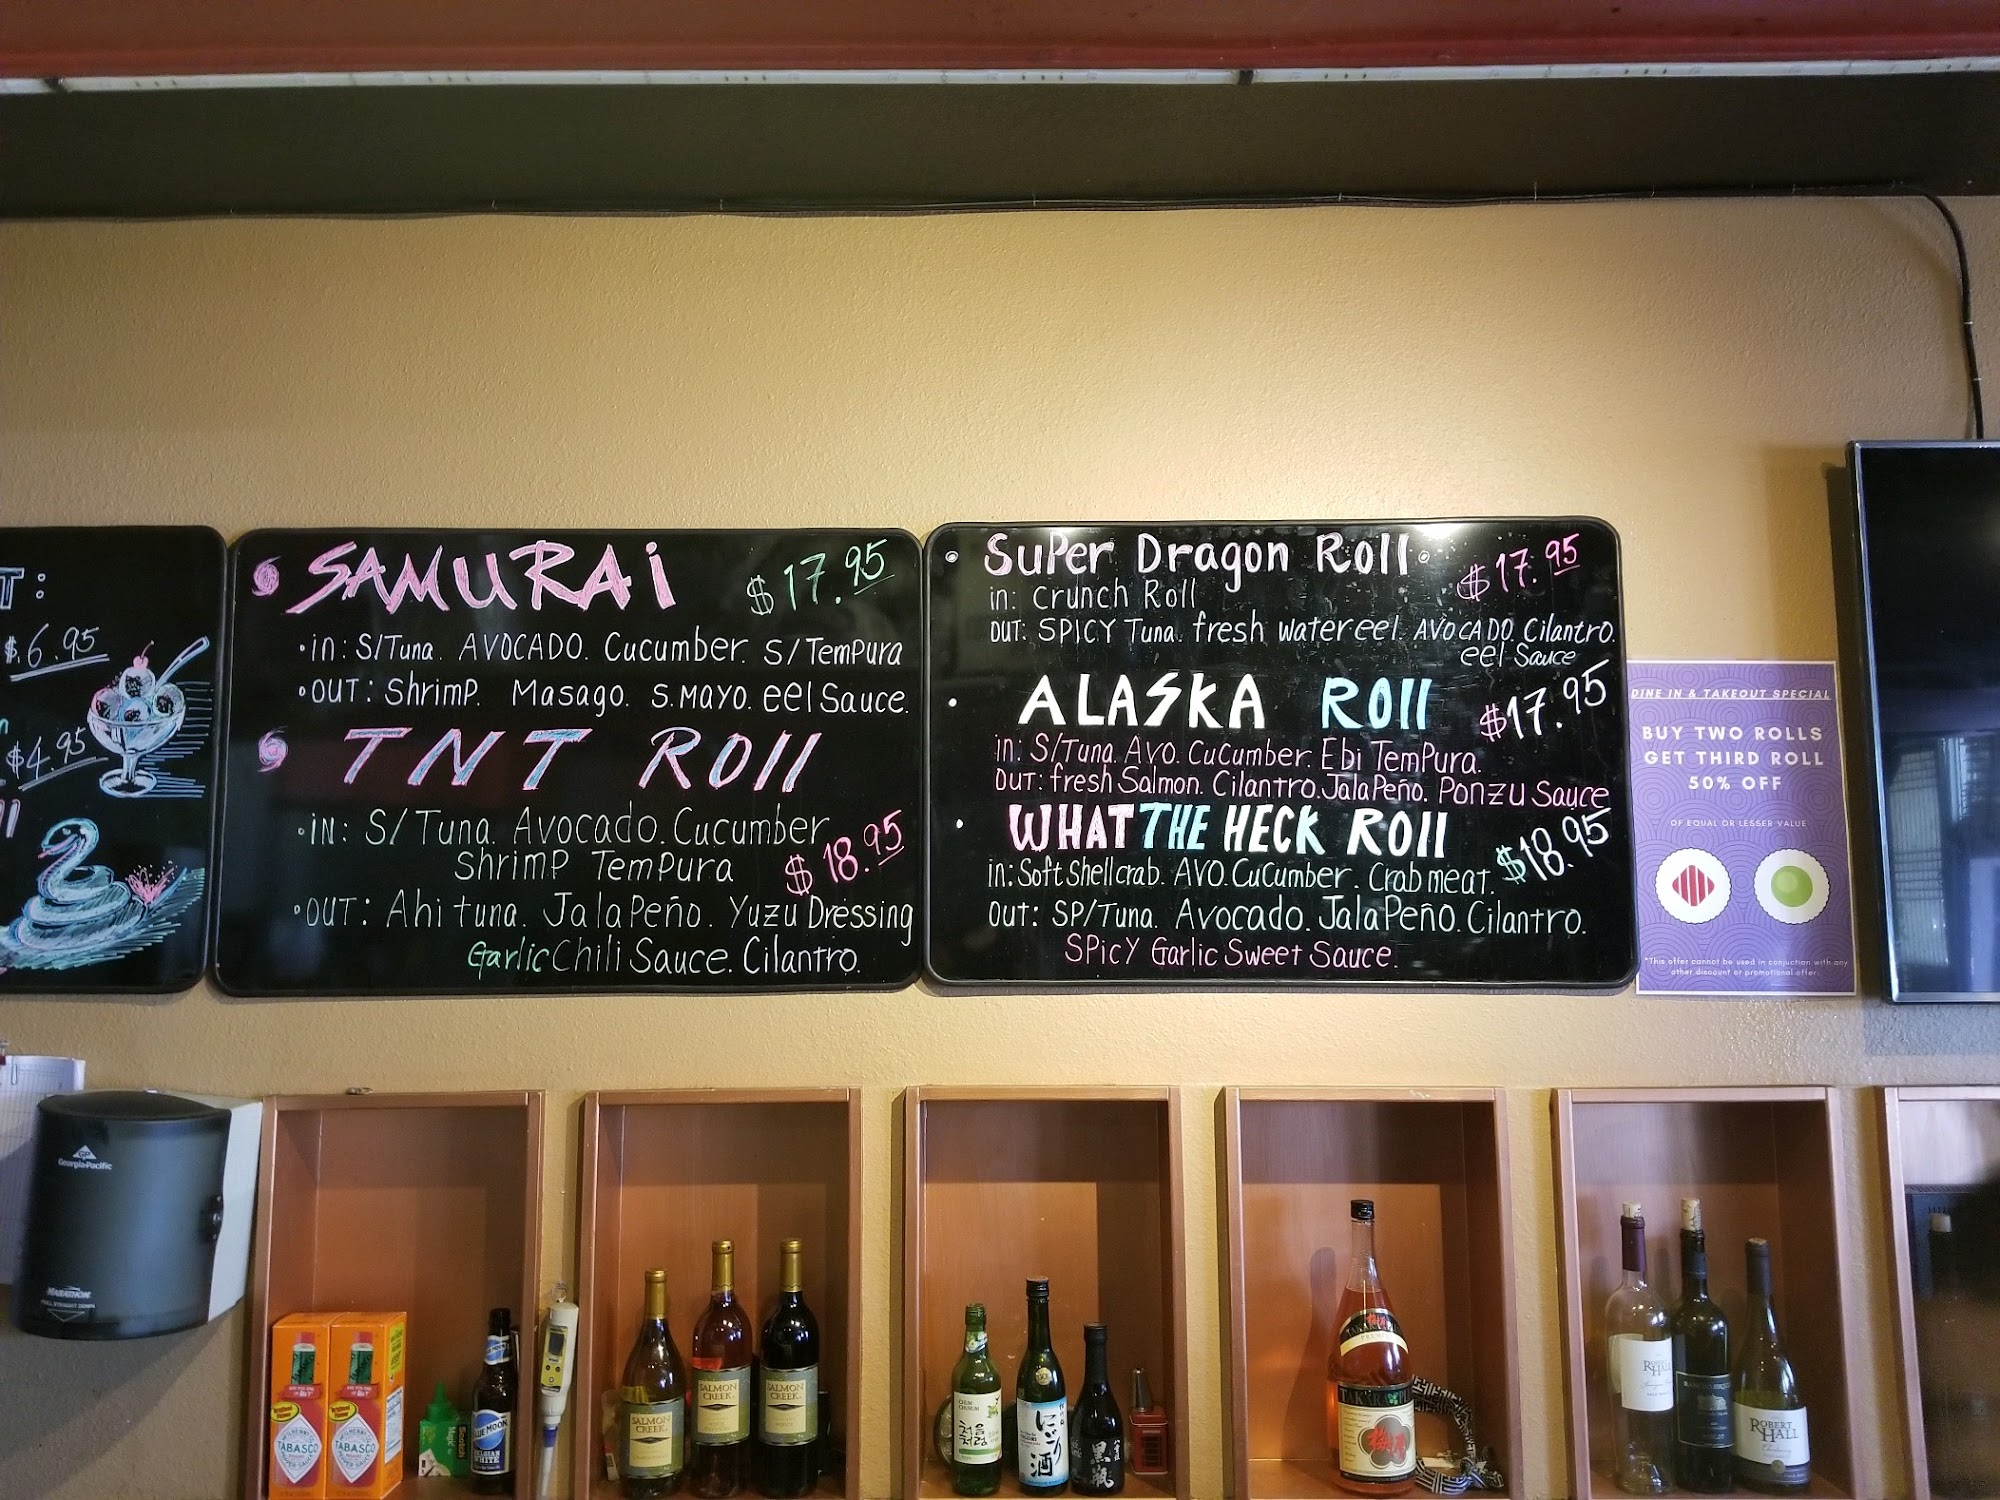 T:
$6.95
$4.95
SAMURAi $17.95
·in: S/Tuna. AVOCADO. Cucumber. S/TemPura
·OUT: ShrimP. Masago. S.MAYO. eel Sauce.
TNT ROll
·iN: S/Tuna. Avocado. Cucumber
ShrimP TemPura $18.95
·OUT: Ahi tuna. JalaPeño. Yuzu Dressing
Garlic Chili Sauce. Cilantro.
SuPer Dragon Roll $17.95
in: Crunch Roll
OUT: SPICY Tuna. fresh water eel. AVOCADO. Cilantro.
eel Sauce
ALASKA ROll $17.95
in: S/Tuna. Avo. CuCumber. Ebi TemPura.
OUT: fresh Salmon. Cilantro. JalaPeño. Ponzu Sauce
WHAT THE HECK ROll $18.95
in: Soft Shell crab. AVO. CuCumber. Crab meat.
Out: SP/Tuna. Avocado. JalaPeño. Cilantro.
SPicY Garlic Sweet Sauce.
DINE IN & TAKEOUT SPECIAL
BUY TWO ROLLS
GET THIRD ROLL
50% OFF
OF EQUAL OR LESSER VALUE
*This offer cannot be used in conjuction with any
other discount or promotional offer.
GP
Georgia-Pacific
MARATHON
TABASCO
TABASCO
BLUE MOON
BELGIAN
WHITE
SALMON
CREEK
SALMON
CREEK
SALMON
CREEK
CHUM
CHURUM
처음
처럼
にごり
酒
黒
瓶
TAKARA
梅酒
ROBERT
HALL